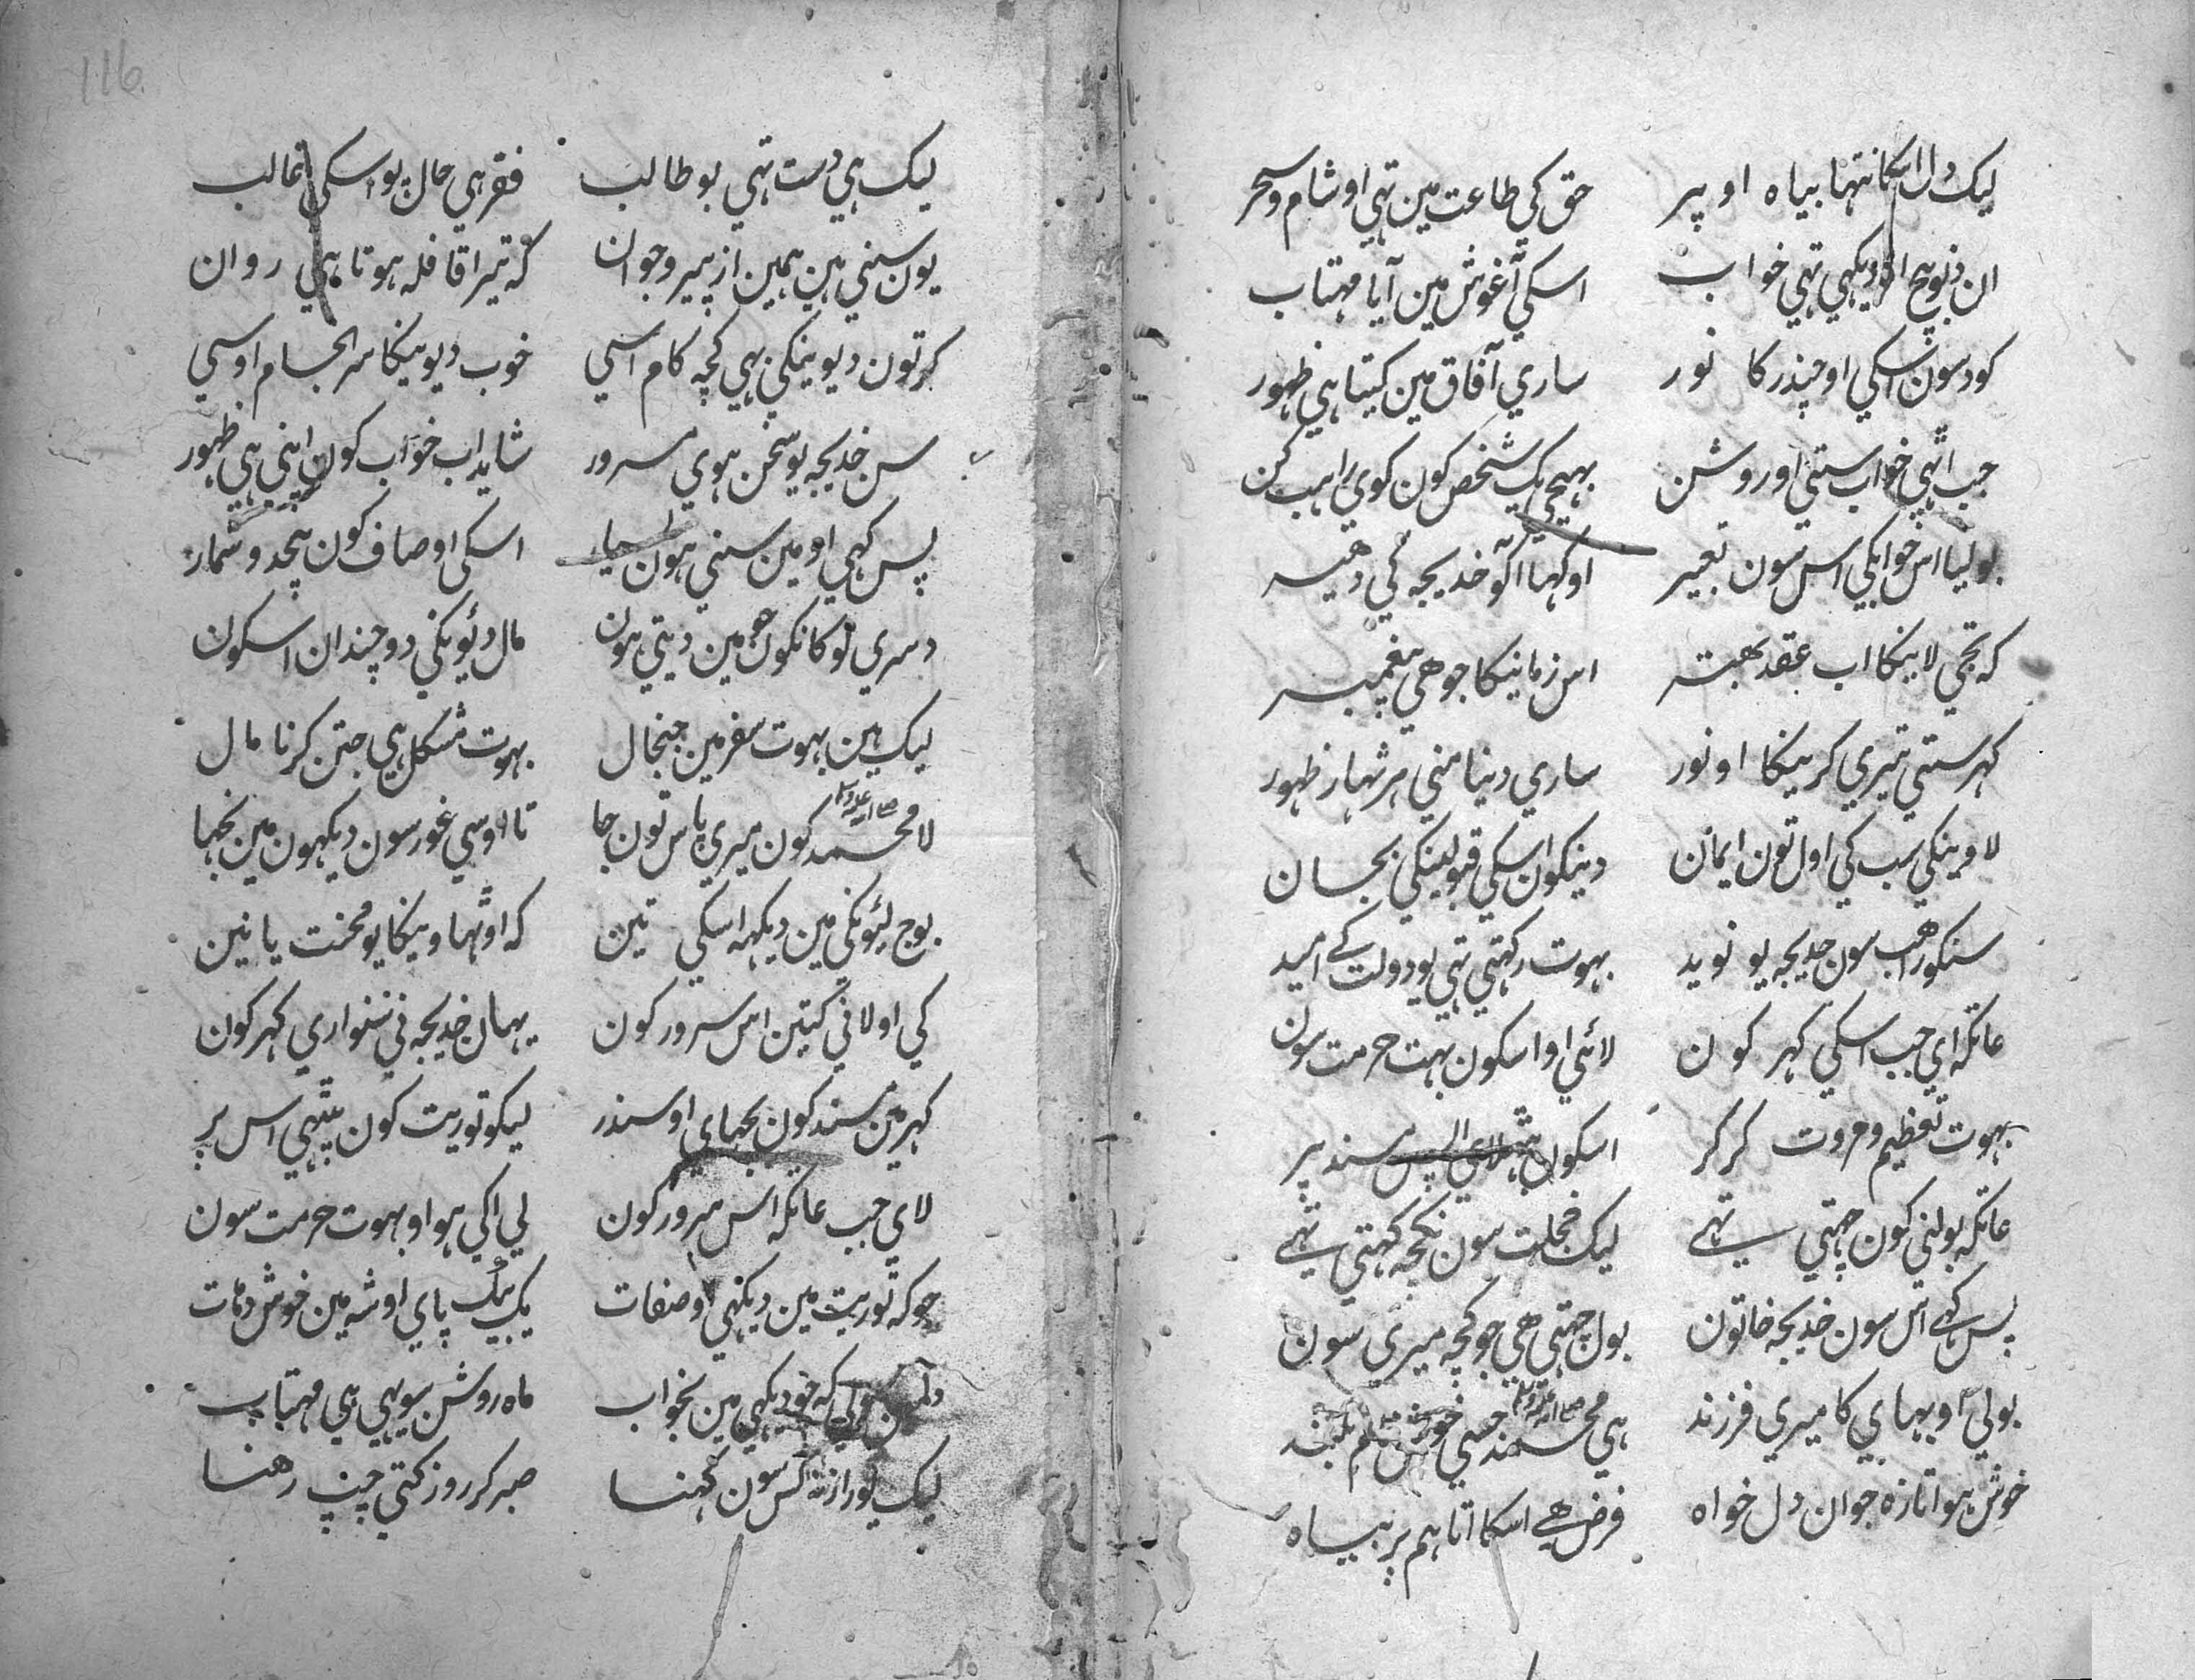 لیک دل اسکا نتہا بیاہ اوپر حق کی طاعت مین تہی او شام و سحر
ان دنو بیچ او دیکہی تہی خواب اسکی آغوش مین آیا مہتاب
کود سون اسکی او چندر کا نور ساری آفاق مین کیتا ہی ظہور
جب اٹہی خواب ستی او روشن بہیجی یک شخص کون کوی راہب کن
بولیا اس خوابکی اس سون تعبیر او کہا اکو خدیجہ کی دہیر
کہ تجی لاینکا اب عقد بہیتر اس زمانیکا جو ھی پیغمبر
کہر ستی تیری کریںکا او نور ساری دنیا منی ہر ٹہار ظہور
لاوینکی سب کی اول تون ایمان دینکون اسکی قبولینکی بجان
سنکو راھب سون خدیجہ یو نوید بہوت رکہتی تہی یو دولت کے امید
عاتکہ ای جب اسکی کہر کون لائی او اسکون بہت حرمت سون
بہوت تعظیم و مروت کر کر اسکون بٹہلای اپس مسند پر
عاتکہ بولنی کون چہتی تہے لیک خجلت سون نکچہ کہتی تہے
پس کہے اس سون خدیجہ خاتون بول چہتی ھی جو کچہ میری سون
بولی او بہای کا میری فرزند ہی محمد صلی اللہ علیہ وسلم جسی بلند
خوش ہوا تازہ جوان دل خواہ فرض ھے اسکا اتا ہم پر بیاہ
لیک ہی دست تہی بو طالب فقر ہی حال پو اسکی غالب
یون سنی ہین ہمین از پیر و جوان کہ تیرا قافلہ ہوتا ہی روان
کر تون دیوینکی ہی کچہ کام اسی خوب دیوینکا سر انجام اوسی
سن خدیجہ یو سخن ہوی مسرور شاید اب خواب کون اپنی ہی ظہور
پس کہی او مین سنی ہون بسیار اسکی اوصاف کون بیحد و شمار
دسری لوکانکون جو مین دیتی ہون مال دیؤنکی دو چندان اسکون
لیک ہین بہوت سفر مین جنجال بہوت مشکل ہی جتن کرنا مال
لا محمد صلی اللہ علیہ وسلم کون میری پاس تون جا تا اوسی غور سون دیکہون مین بجہا
بوج لیؤنکی مین دیکہہ اسکی تین کہ اوٹہاوینکا یو محنت یا نین
کی او لانی کیتین اس سرور کون یہان خدیجہ نی سنواری کہر کون
کہر مین مسند کون بچہای او سندر لیکو توریت کون بیٹہی اس پر
لای جب عاتکہ اس سرور کون لی اکی ہو او بہوت حرمت سون
جو کہ توریت مین دیکہی او صفات یک بیک پای او شہ مین خوش ذات
کہ جو دیکہی مین بخواب ماہ روشن سو یہی ہی مہتاب
لیک یو راز نہ کس سون کہنا صبر کر روز کتی چپ رھنا
116